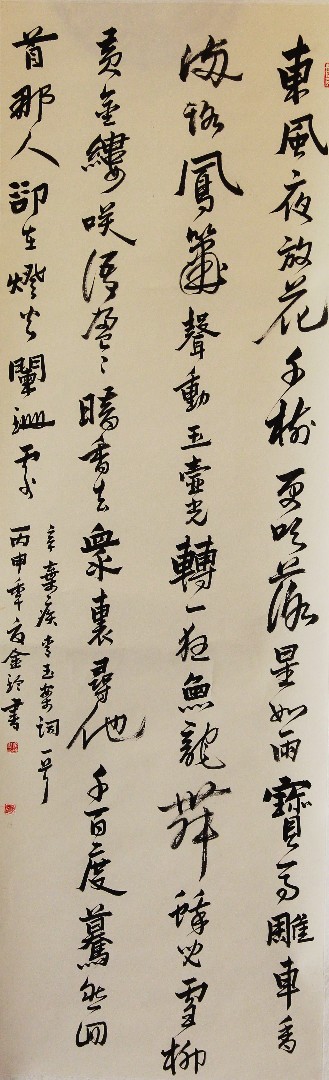 東風夜放花千樹更吹落星如雨寶馬雕車香
滿路鳳簫聲動玉壺光轉一夜魚龍舞蛾兒雪柳
黃金縷咲語盈〻暗香去衆裏尋他千百度驀然回
首那人卻在燈火闌珊處
辛棄疾青玉案詞一首
丙申年金玲書